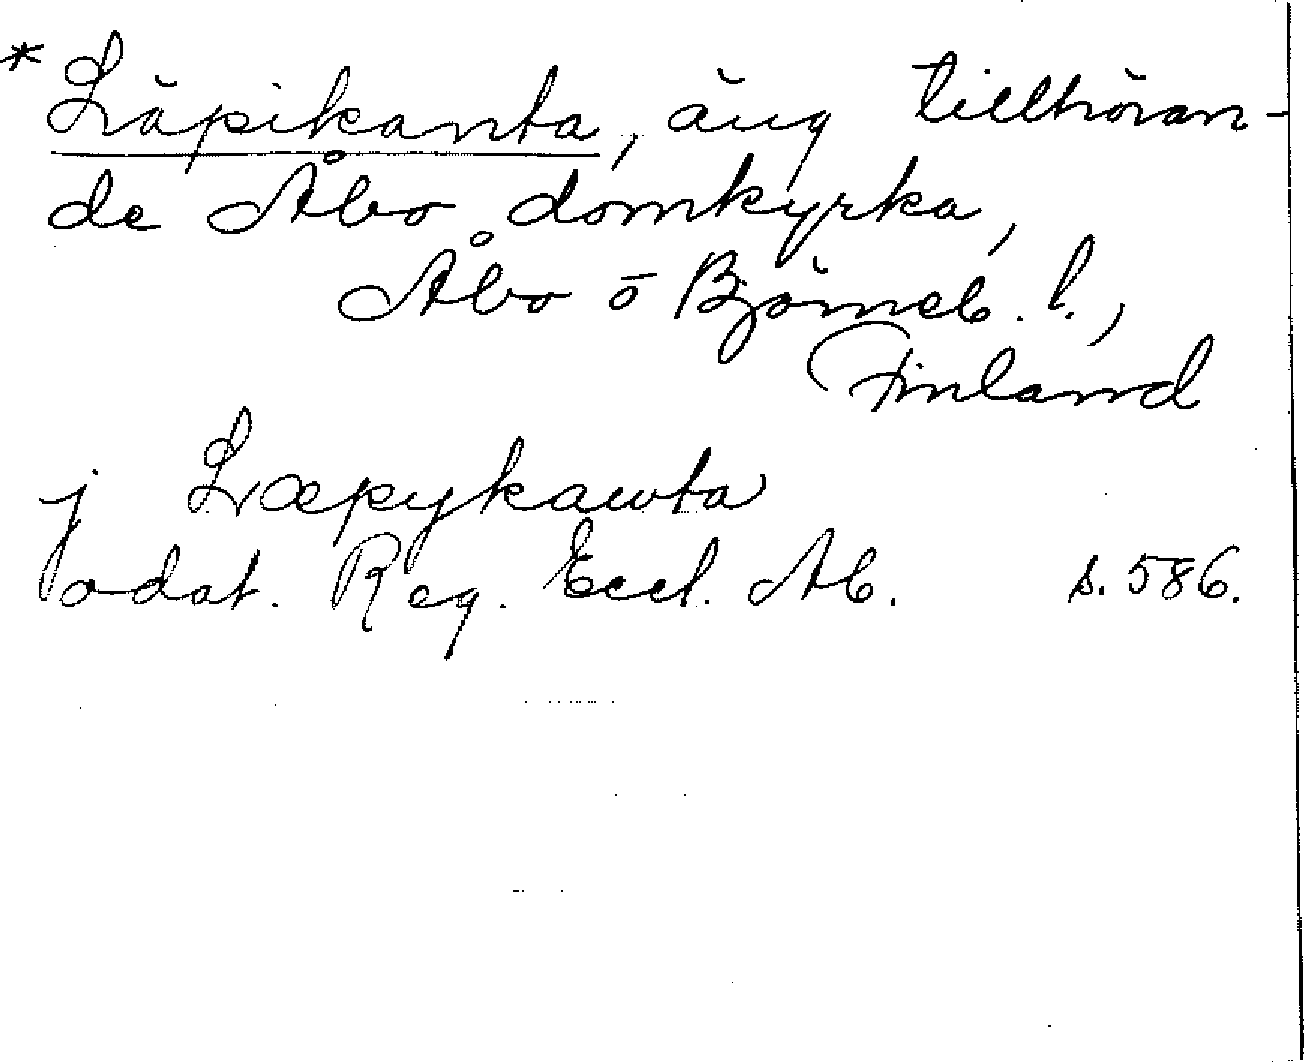 * Läpikanta, äng tillhöran-
de Åbo domkyrka,
Åbo o Björneb. l.,
Finland
j Læpykawta
odat. Reg. Eccl. Ab. s. 586.